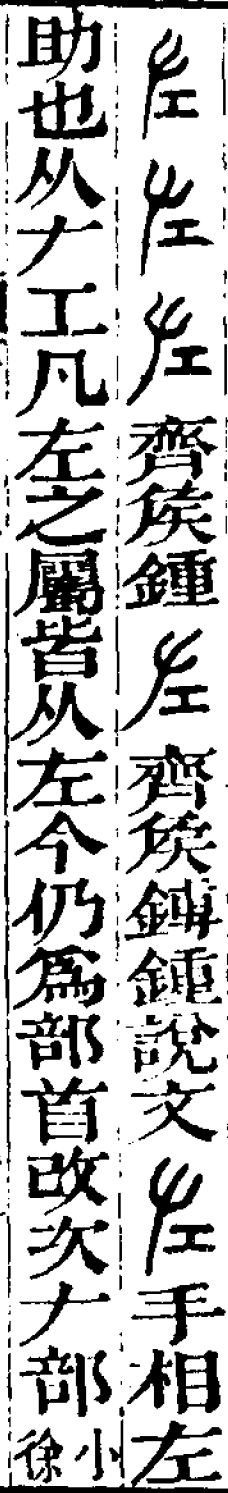 左左左齊矦鍾左齊矦鎛鍾說文左手相左
助也从𠂇工凡左之屬皆从左今仍爲部首改次𠂇部小徐